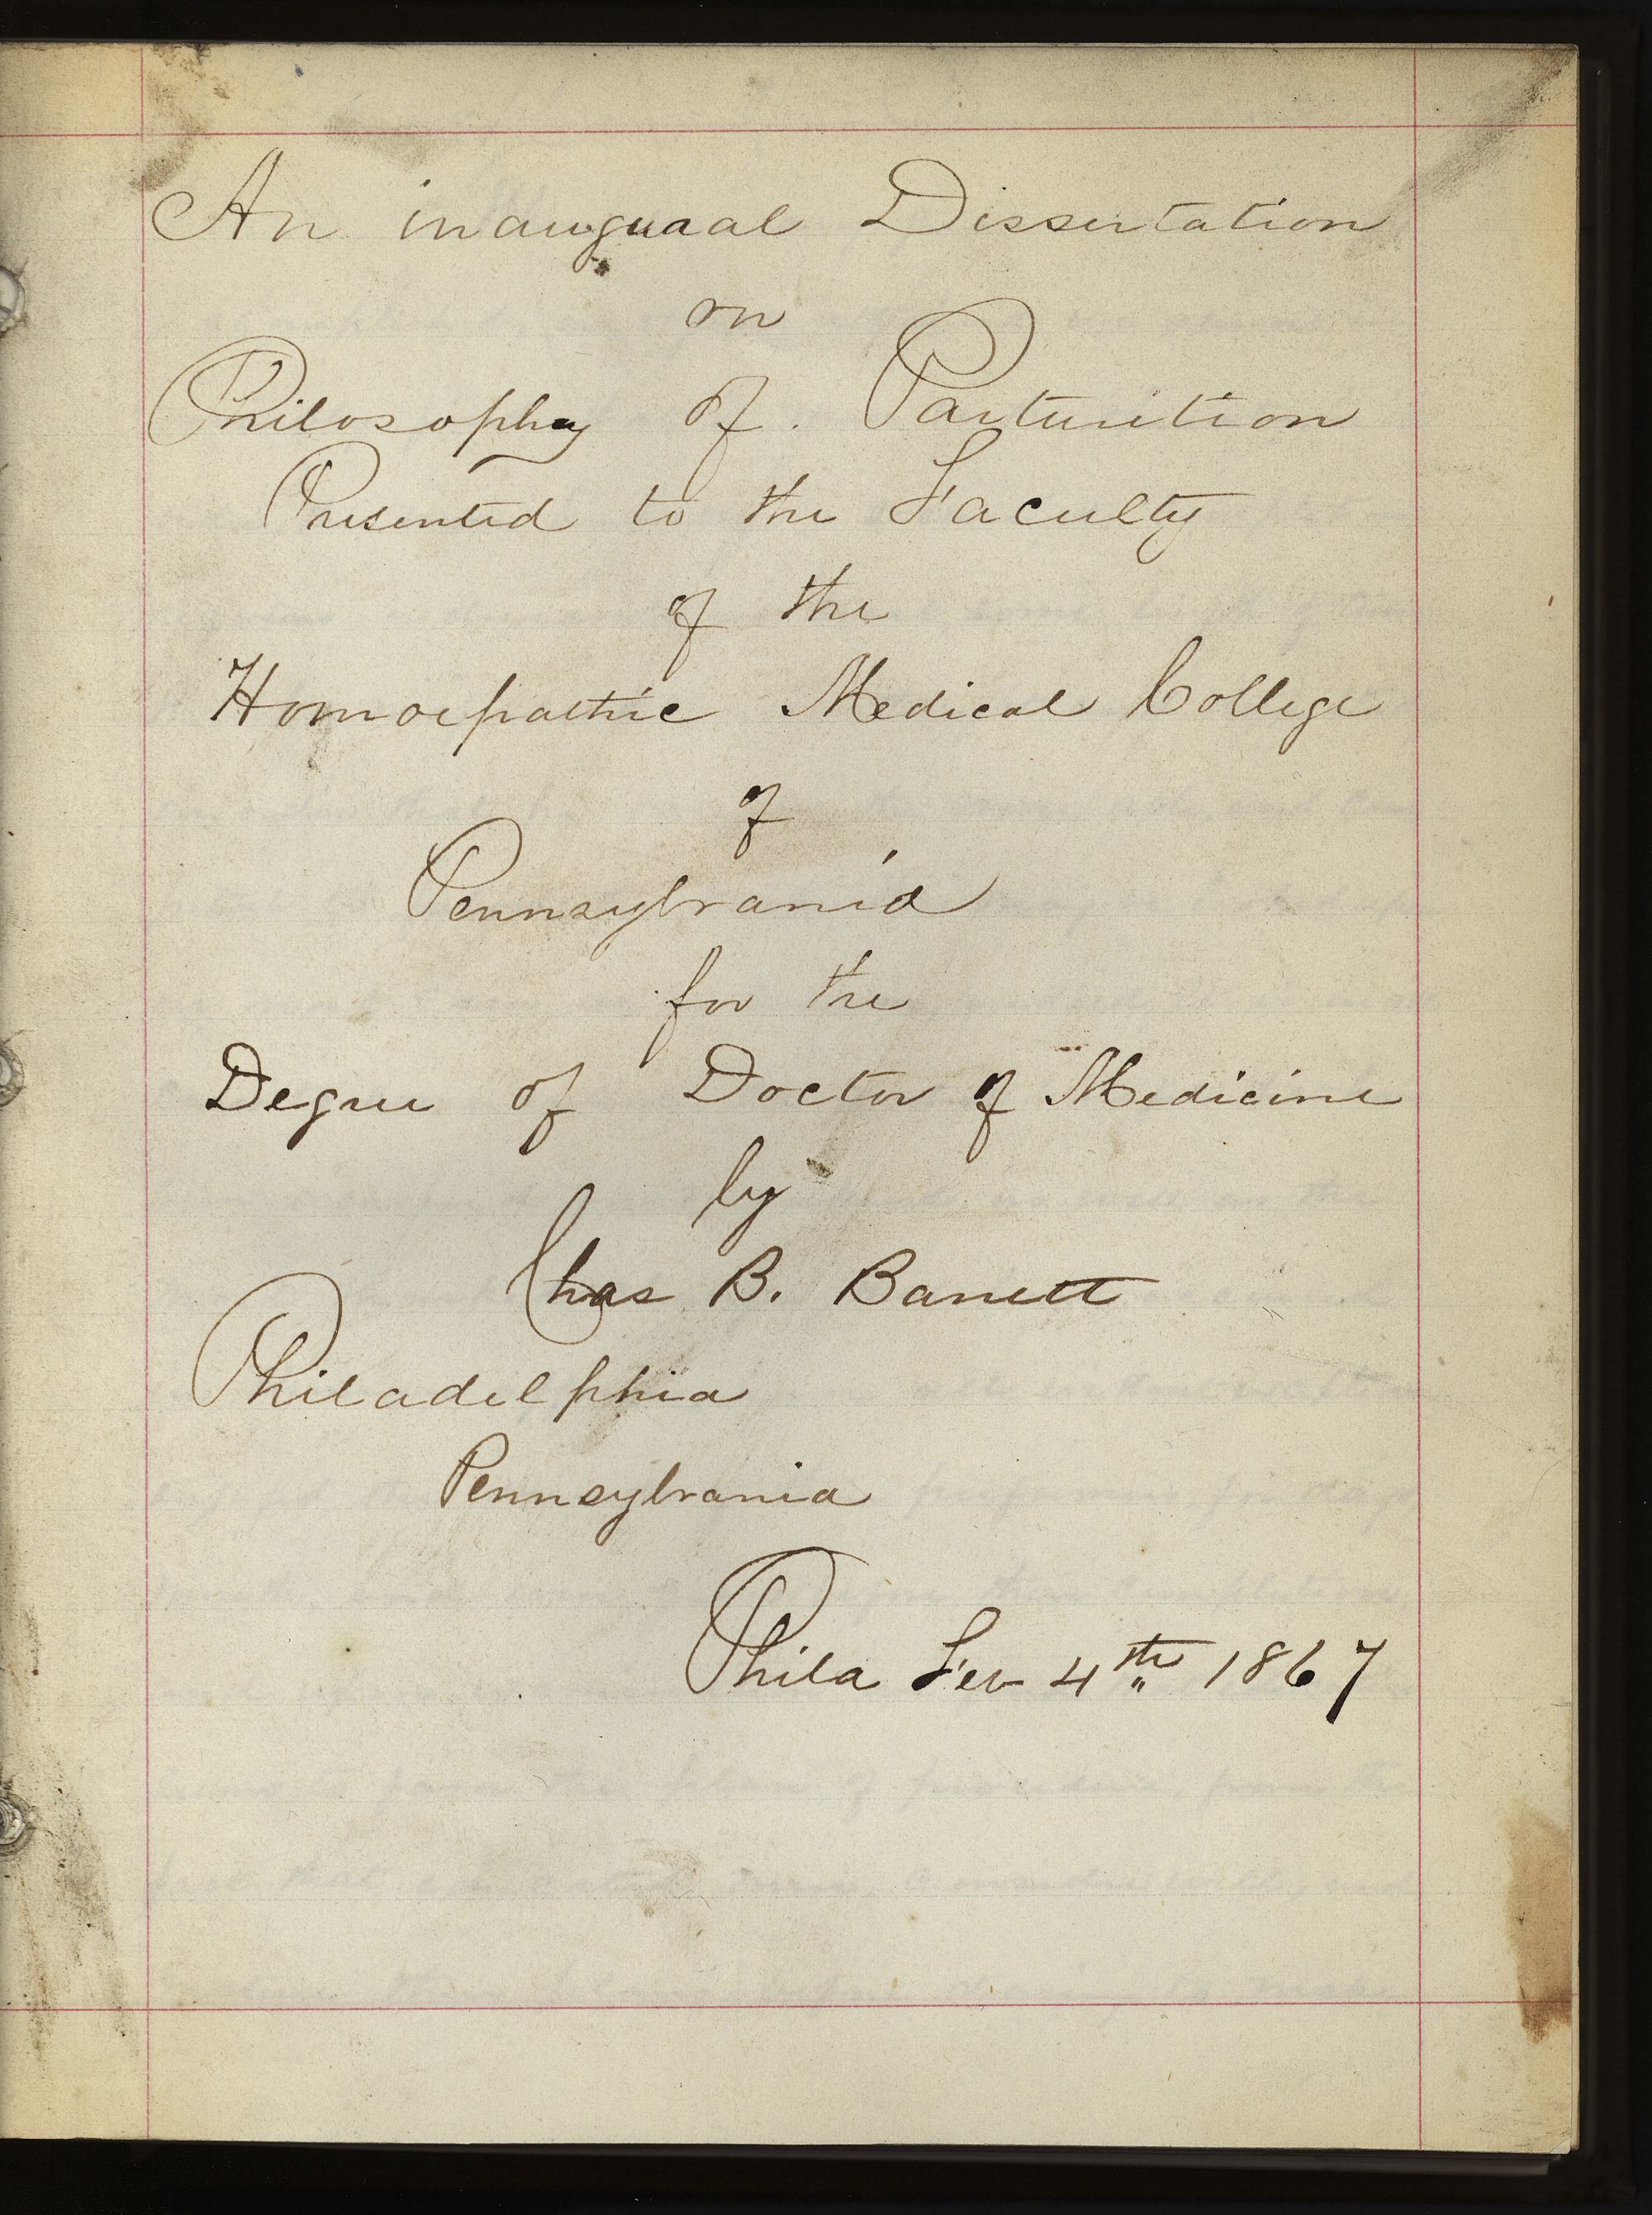 An inauguaal Dissertation
on
Philosophy of Parturition
Presented to the Faculty
of the
Homoepathic Medical College
of
Pennsylvania
for the
Degree of Doctor of Medicine
by
Chas B. Barrett
Philadelphia
Pennsylvania
Phila Feb 4th 1867